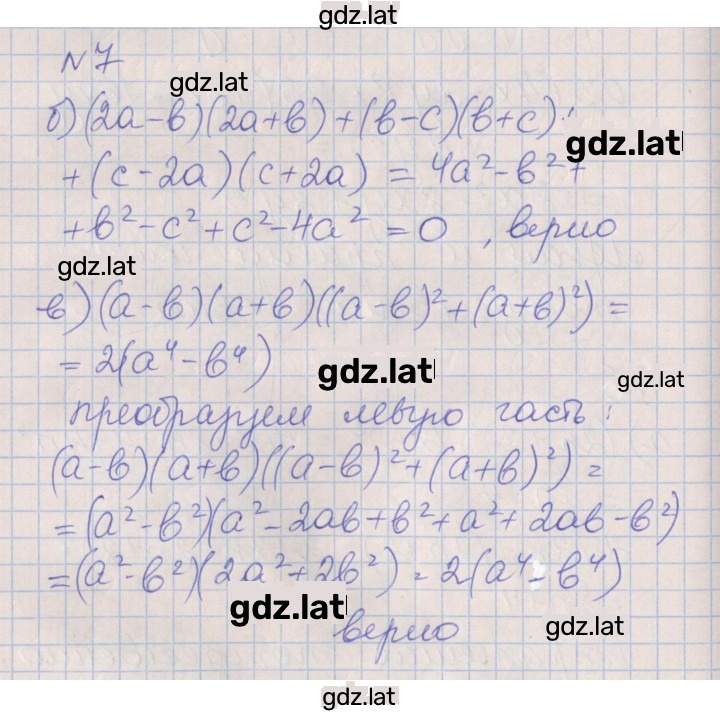 gdz.lat
№7
gdz.lat
б) (2a-b)(2a+b)+(b-c)(b+c)+
gdz.lat
+(c-2a)(c+2a) = 4a²-b²+
+b²-c²+c²-4a² = 0 , верно
gdz.lat
в) (a-b)(a+b)((a-b)²+(a+b)²) =
= 2(a⁴-b⁴)
gdz.lat
gdz.lat
преобразуем левую часть:
(a-b)(a+b)((a-b)²+(a+b)²) =
= (a²-b²)(a²-2ab+b²+a²+2ab-b²)
= (a²-b²)(2a²+2b²) = 2(a⁴-b⁴)
gdz.lat
верно
gdz.lat
gdz.lat